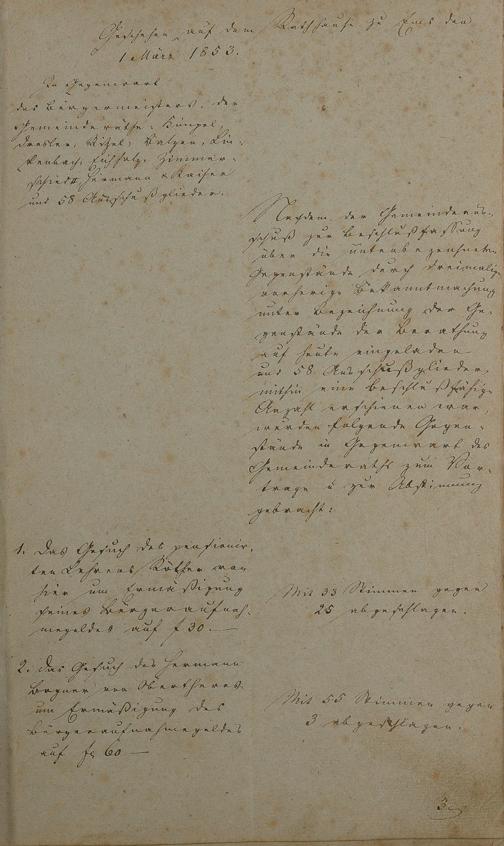 Geschehen auf dem Rathhause zu Ems den
1 März 1853.
In Gegenwart
des Bürgermeisters, der
Gemeinderäthe: Küngel,
Dresler, Kitzel, Balzer, Lin-
kenbach, Zimmer-
schied II Hermann & Kaiser
und 58 Ausschußglieder.
Nachdem der Gemeindeaus-
schuß zur Beschlußfassung
über die untenbezeichneten
Gegenstände durch dreimalige
vorherige Bekanntmachung
unter Bezeichnung der Ge-
genstände der Berathung
auf heute eingeladen
und 58 Ausschußglieder,
mithin eine beschlußfähige
Anzahl erschienen war,
wurden folgende Gegen-
stände in Gegenwart des
Gemeinderaths zum Vor-
trage u zur Abstimmung
gebracht:
1. Das Gesuch des pensionir-
ten Lehrers Köther von
hier um Ermäßigung
seines Bürgeraufnah-
megeldes auf f 30. —
Mit 33 Stimmen gegen
25 abgeschlagen.
2. Das Gesuch des Hermann
Bogner von Obertheres
um Ermäßigung des
Bürgeraufnahmegeldes
auf f 60 —
Mit 55 Stimmen gegen
3 abgeschlagen.
3